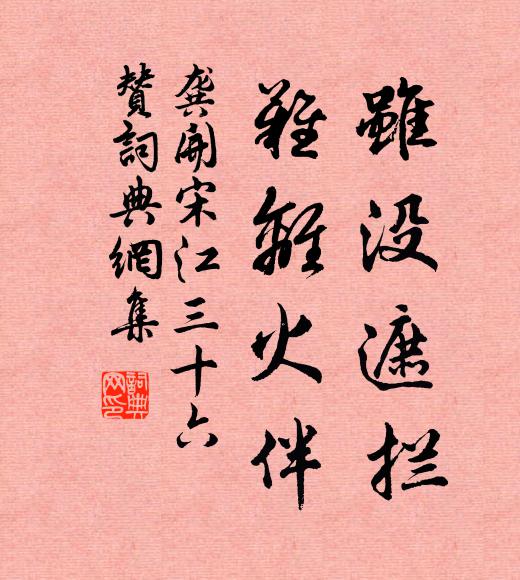 雖没遮拦
難離火伴
龔開宋江三十六
贊詞典網集
詞典网印